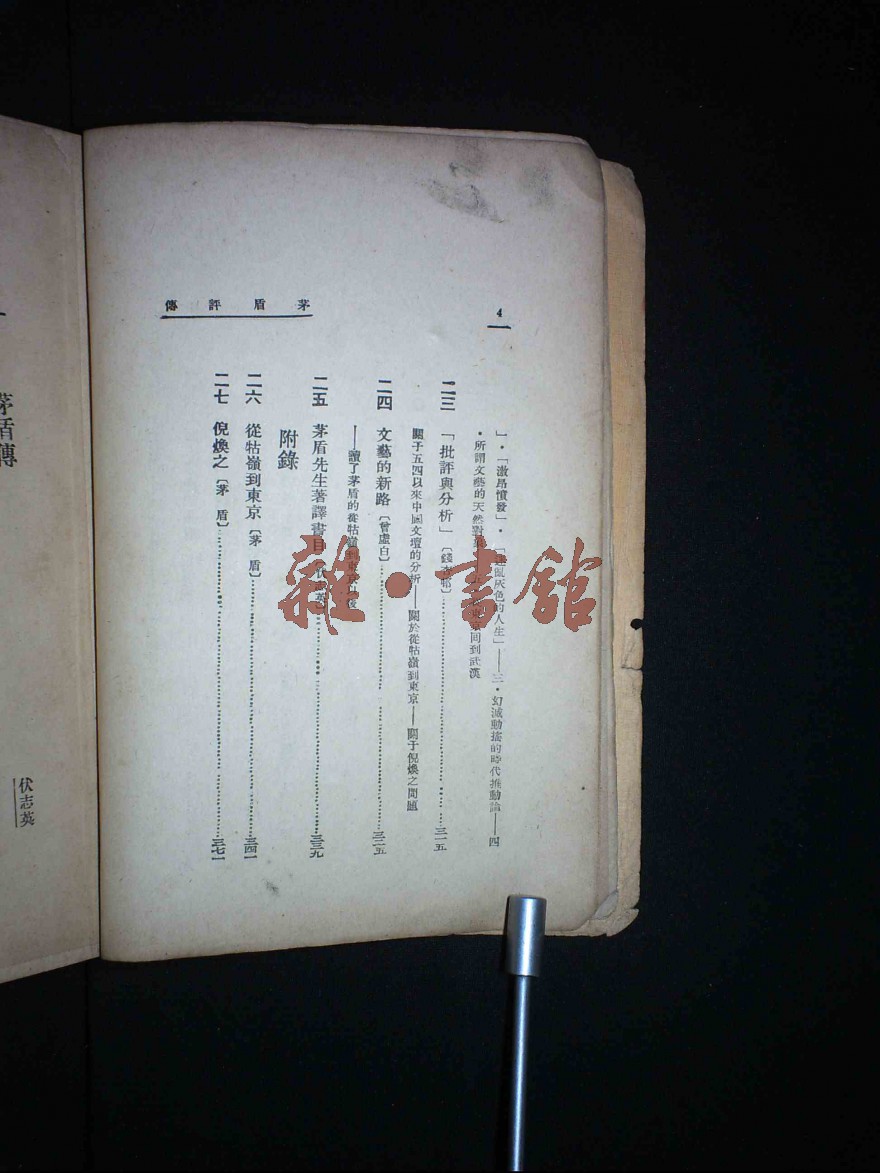 4
茅盾評傳
」·「激昂憤發」·「 灰色的人生」——三·幻滅動搖的時代推動論——四
·所謂文藝的天然對 回到武漢
二三 「批評與分析」〔錢 邨〕 三一五
關于五四以來中國文壇的分析——關於從牯嶺到東京——關于倪煥之問題
二四 文藝的新路〔曾虛白〕 三二五
——讀了茅盾的從牯嶺到東京以後
二五 茅盾先生著譯書目〔伏志英〕 三三九
附錄
二六 從牯嶺到東京〔茅 盾〕 三四一
二七 倪煥之〔茅 盾〕 三七一
茅盾傳
伏志英
雜·書館